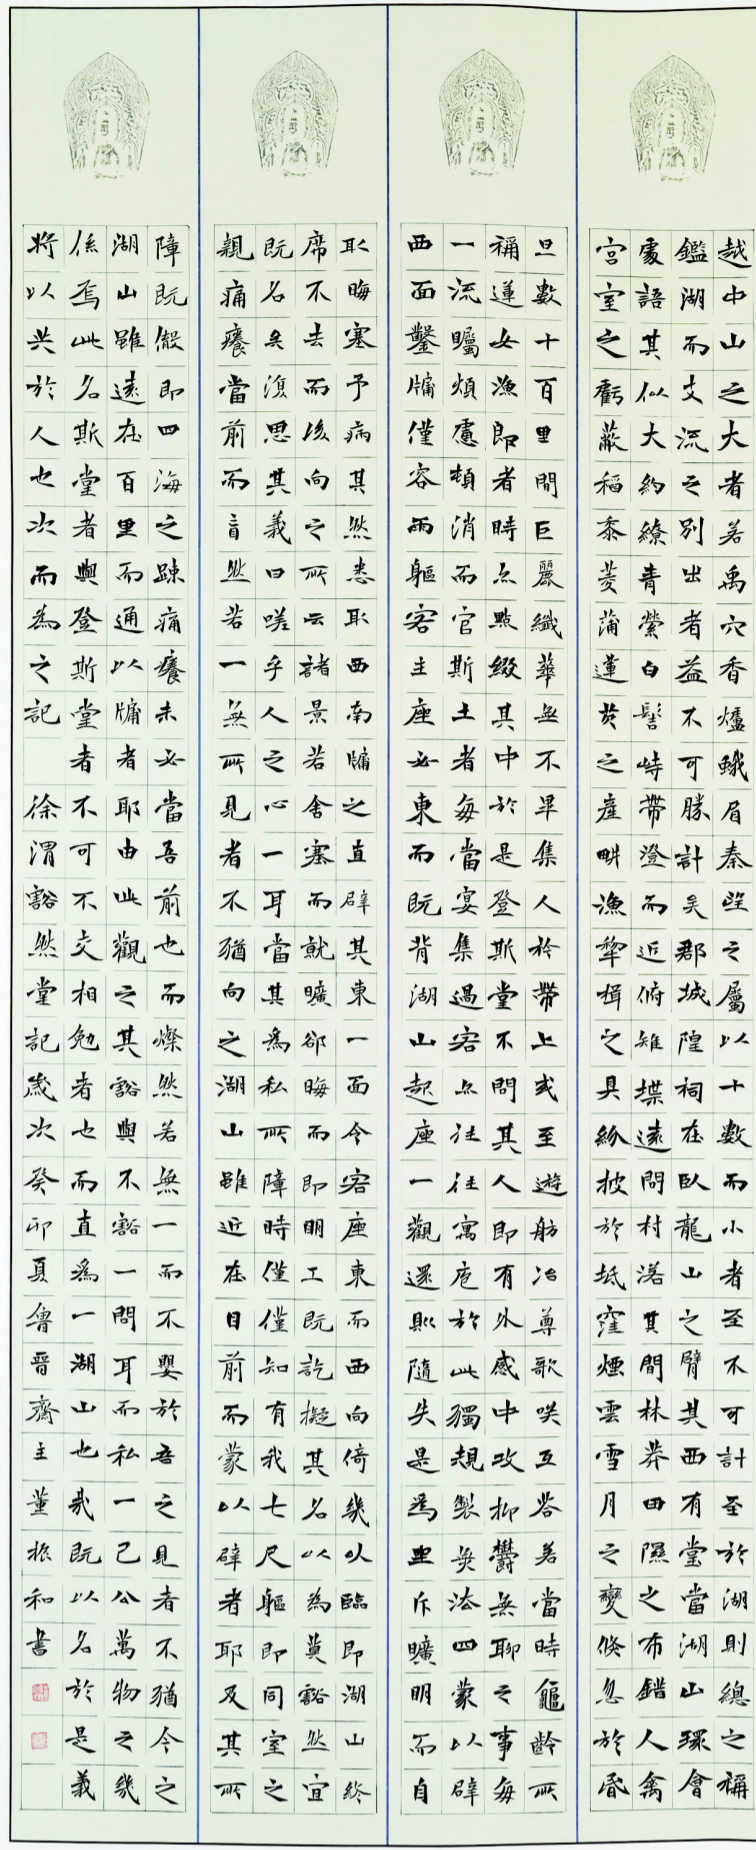 越中山之大者若禹穴香爐蛾眉秦望之屬以十數而小者至不可計至於湖則總之稱
鑑湖而支流之別出者益不可勝計矣郡城隍祠在臥龍山之臂其西有堂當湖山環會
處語其似大約繚青縈白髻峙帶澄而近俯雉堞遠問村落其間林莽田隰之布錯人禽
宮室之虧蔽稻黍菱蒲蓮芡之產畊漁犂楫之具紛披於坻窪煙雲雪月之變倐忽於昏
旦數十百里間巨麗纖華無不畢集人衿帶上或至遊舫冶尊歌咲互答若當時龜齡所
稱蓮女漁郎者時亦點綴其中於是登斯堂不問其人即有外感中攻抑鬱無聊之事每
一流矚煩慮頓消而官斯土者每當宴集過客亦往往寓庖於此獨規製無法四蒙以辟
西面鑿牖僅容兩軀客主座必東而既背湖山起座一觀還則隨失是為坐斥曠明而自
取晦塞予病其然悉取西南牖之直辟其東一面令客座東而西向倚幾以臨即湖山終
席不去而後向之所云諸景若舍塞而就曠卻晦而即明工既訖擬其名以為莫豁然宜
既名矣復思其義曰嗟乎人之心一耳當其為私所障時僅僅知有我七尺軀即同室之
親痛癢當前而盲然若一無所見者不猶向之湖山雖近在目前而蒙以辟者耶及其所
障既徹即四海之疎痛癢未必當吾前也而燦然若無一而不嬰於吾之見者不猶今之
湖山雖遠在百里而通以牖者耶由此觀之其豁與不豁一間耳而私一己公萬物之幾
係焉此名斯堂者與登斯堂者不可不交相勉者也而直為一湖山也哉既以名於是義
將以共於人也次而為之記 徐渭豁然堂記歲次癸卯夏魯晉齋主董振和書